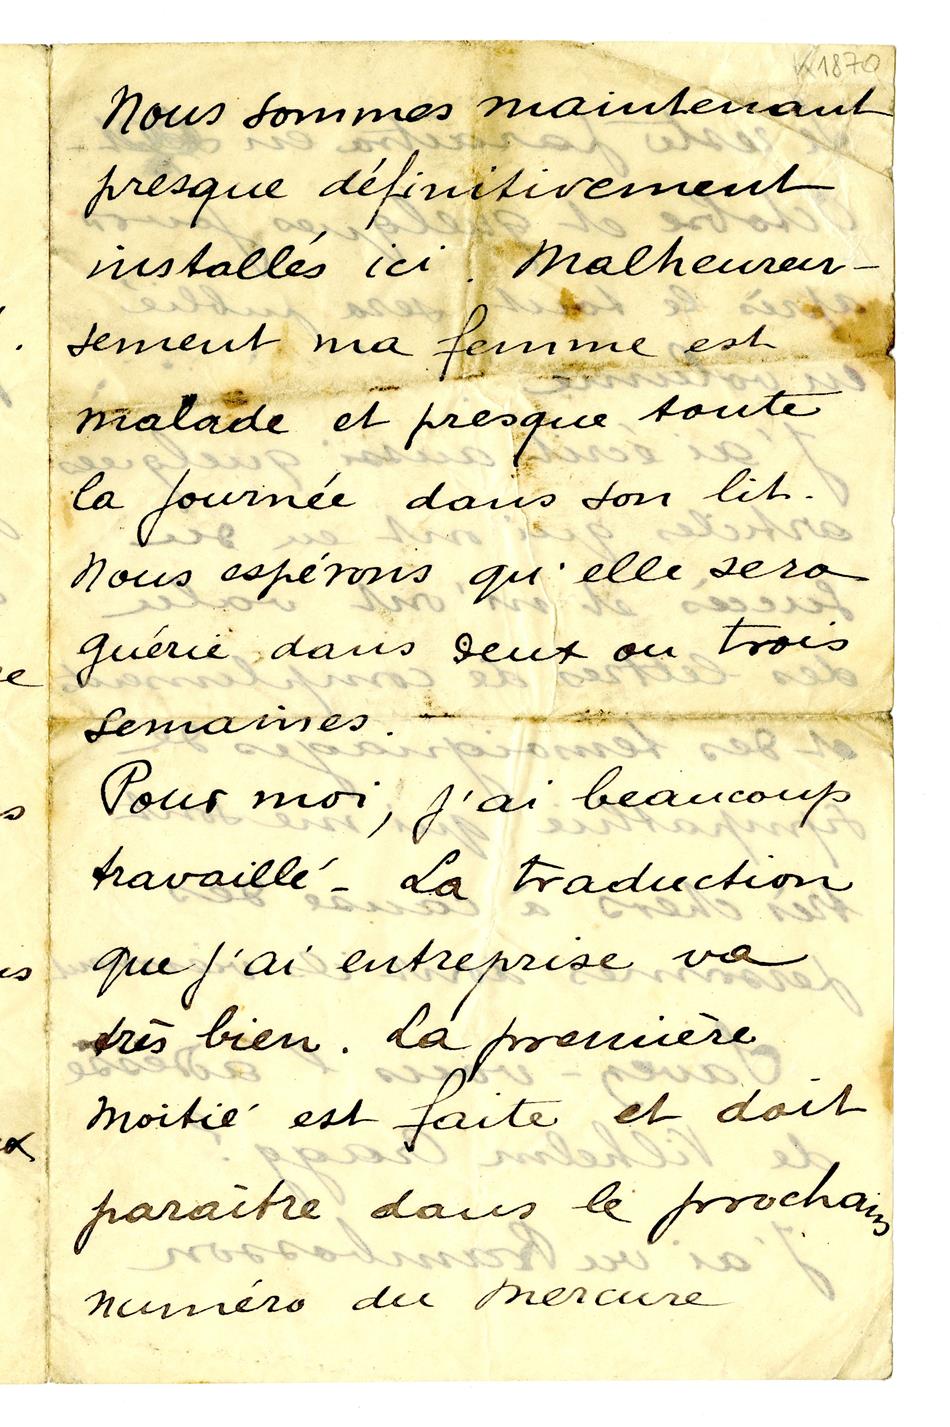 K1870
Nous sommes maintenant
presque définitivement
installés ici. Malheureu-
sement ma femme est
malade et presque toute
la journée dans son lit.
Nous espérons qu'elle sera
guérie dans deux ou trois
semaines.
Pour moi, j'ai beaucoup
travaillé - La traduction
que j'ai entreprise va
très bien. La première
moitié est faite et doit
paraître dans le prochain
numéro du Mercure